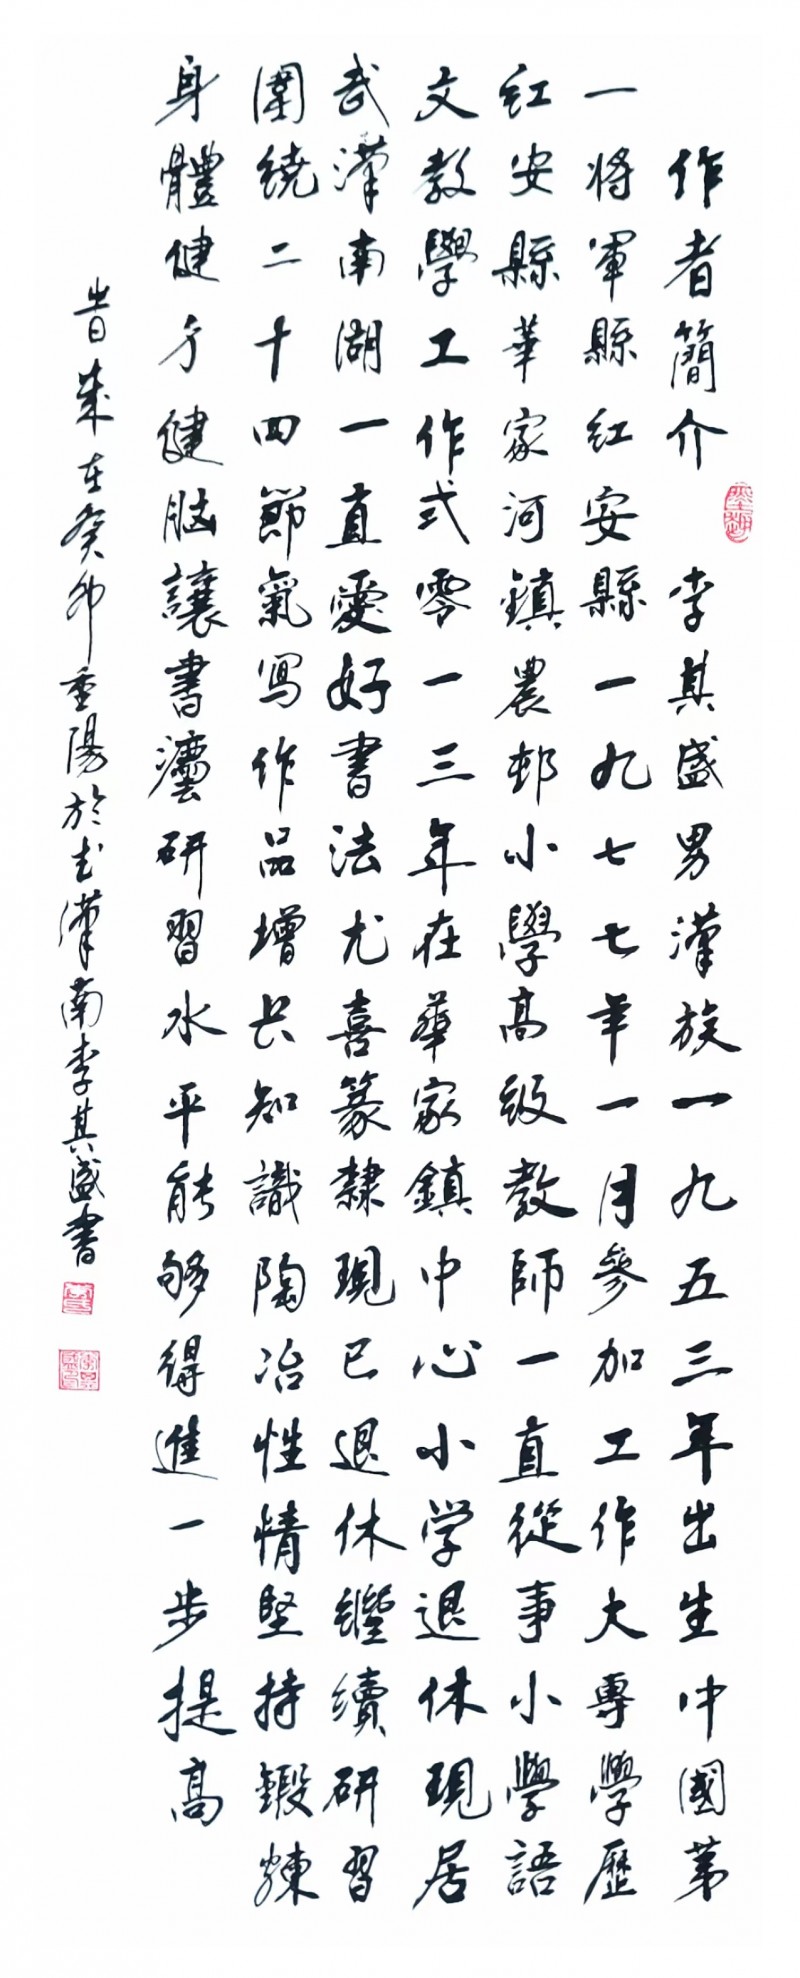 作者簡介 李其盛男漢族一九五三年出生中國第
一將軍縣紅安縣一九七七年一月參加工作大專學歷
紅安縣華家河鎮農邨小學高级教師一直從事小學語
文教學工作弍零一三年在華家鎮中心小学退休現居
武漢南湖一直愛好書法尤喜篆隸現已退休繼續研習
圍繞二十四節氣寫作品增长知識陶冶性情堅持鍛鍊
身體健身健脑讓書灋研習水平能够得進一步提高
時歲在癸卯重陽於武漢南李其盛書